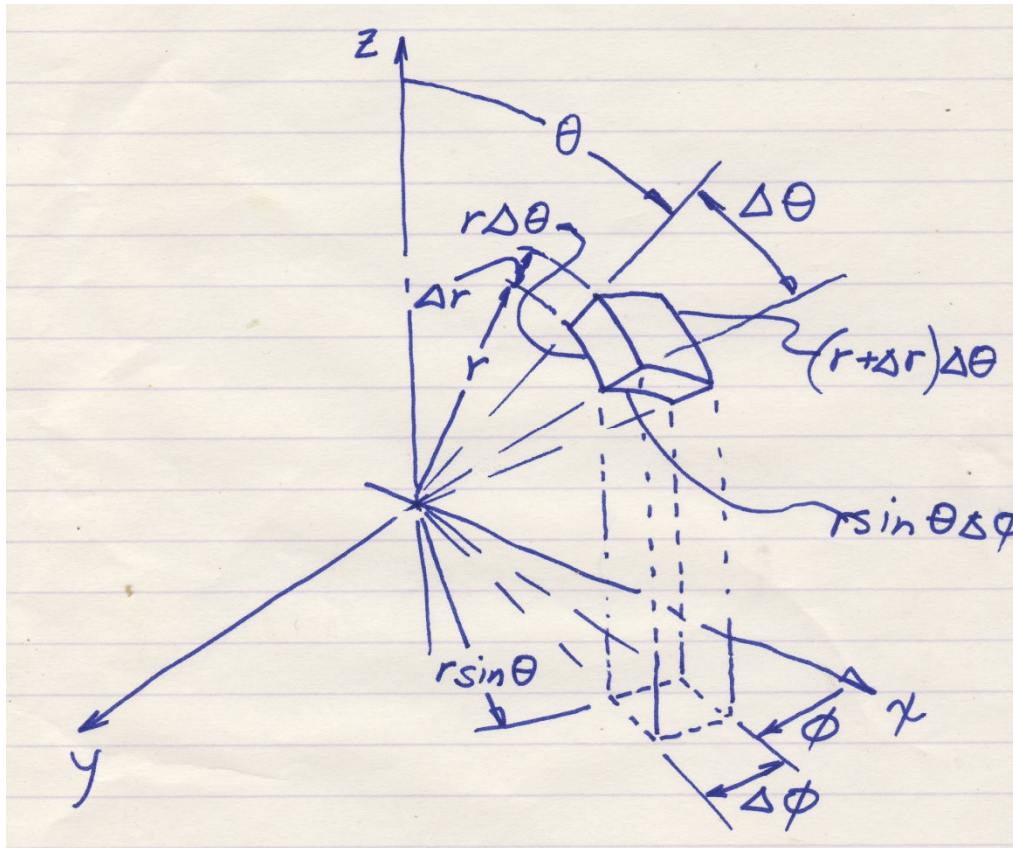 z
θ
Δθ
rΔθ
Δr
r
(r+Δr)Δθ
rsin θΔϕ
rsinθ
x
ϕ
y
Δϕ